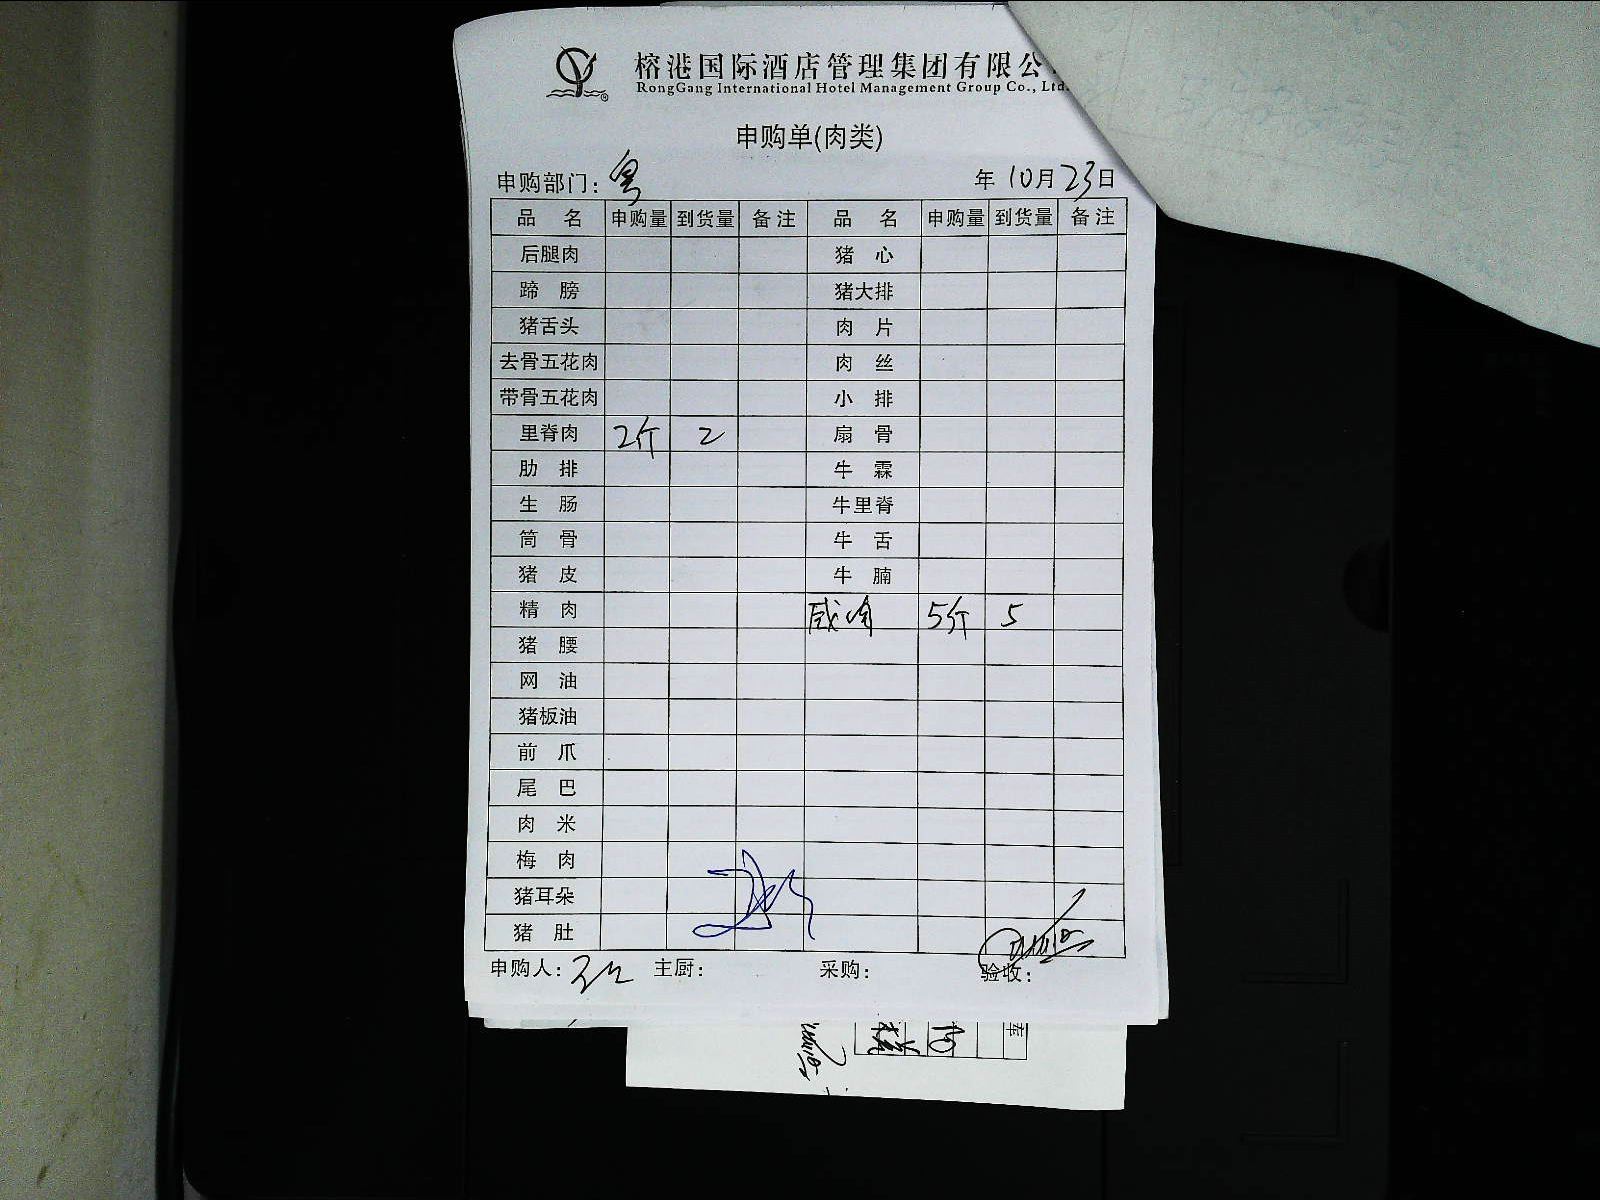 榕港国际酒店管理集团有限公
RongGang International Hotel Management Group Co., Ltd.
申购单(肉类)
申购部门: 粤 年 10月 23日
品名 申购量 到货量 备注 品名 申购量 到货量 备注
后腿肉 猪心
蹄膀 猪大排
猪舌头 肉片
去骨五花肉 肉丝
带骨五花肉 小排
里脊肉 2斤 2 扇骨
肋排 牛霖
生肠 牛里脊
筒骨 牛舌
猪皮 牛腩
精肉 5斤 5
猪腰
网油
猪板油
前爪
尾巴
肉米
梅肉
猪耳朵
猪肚
申购人: 主厨: 采购: 验收: